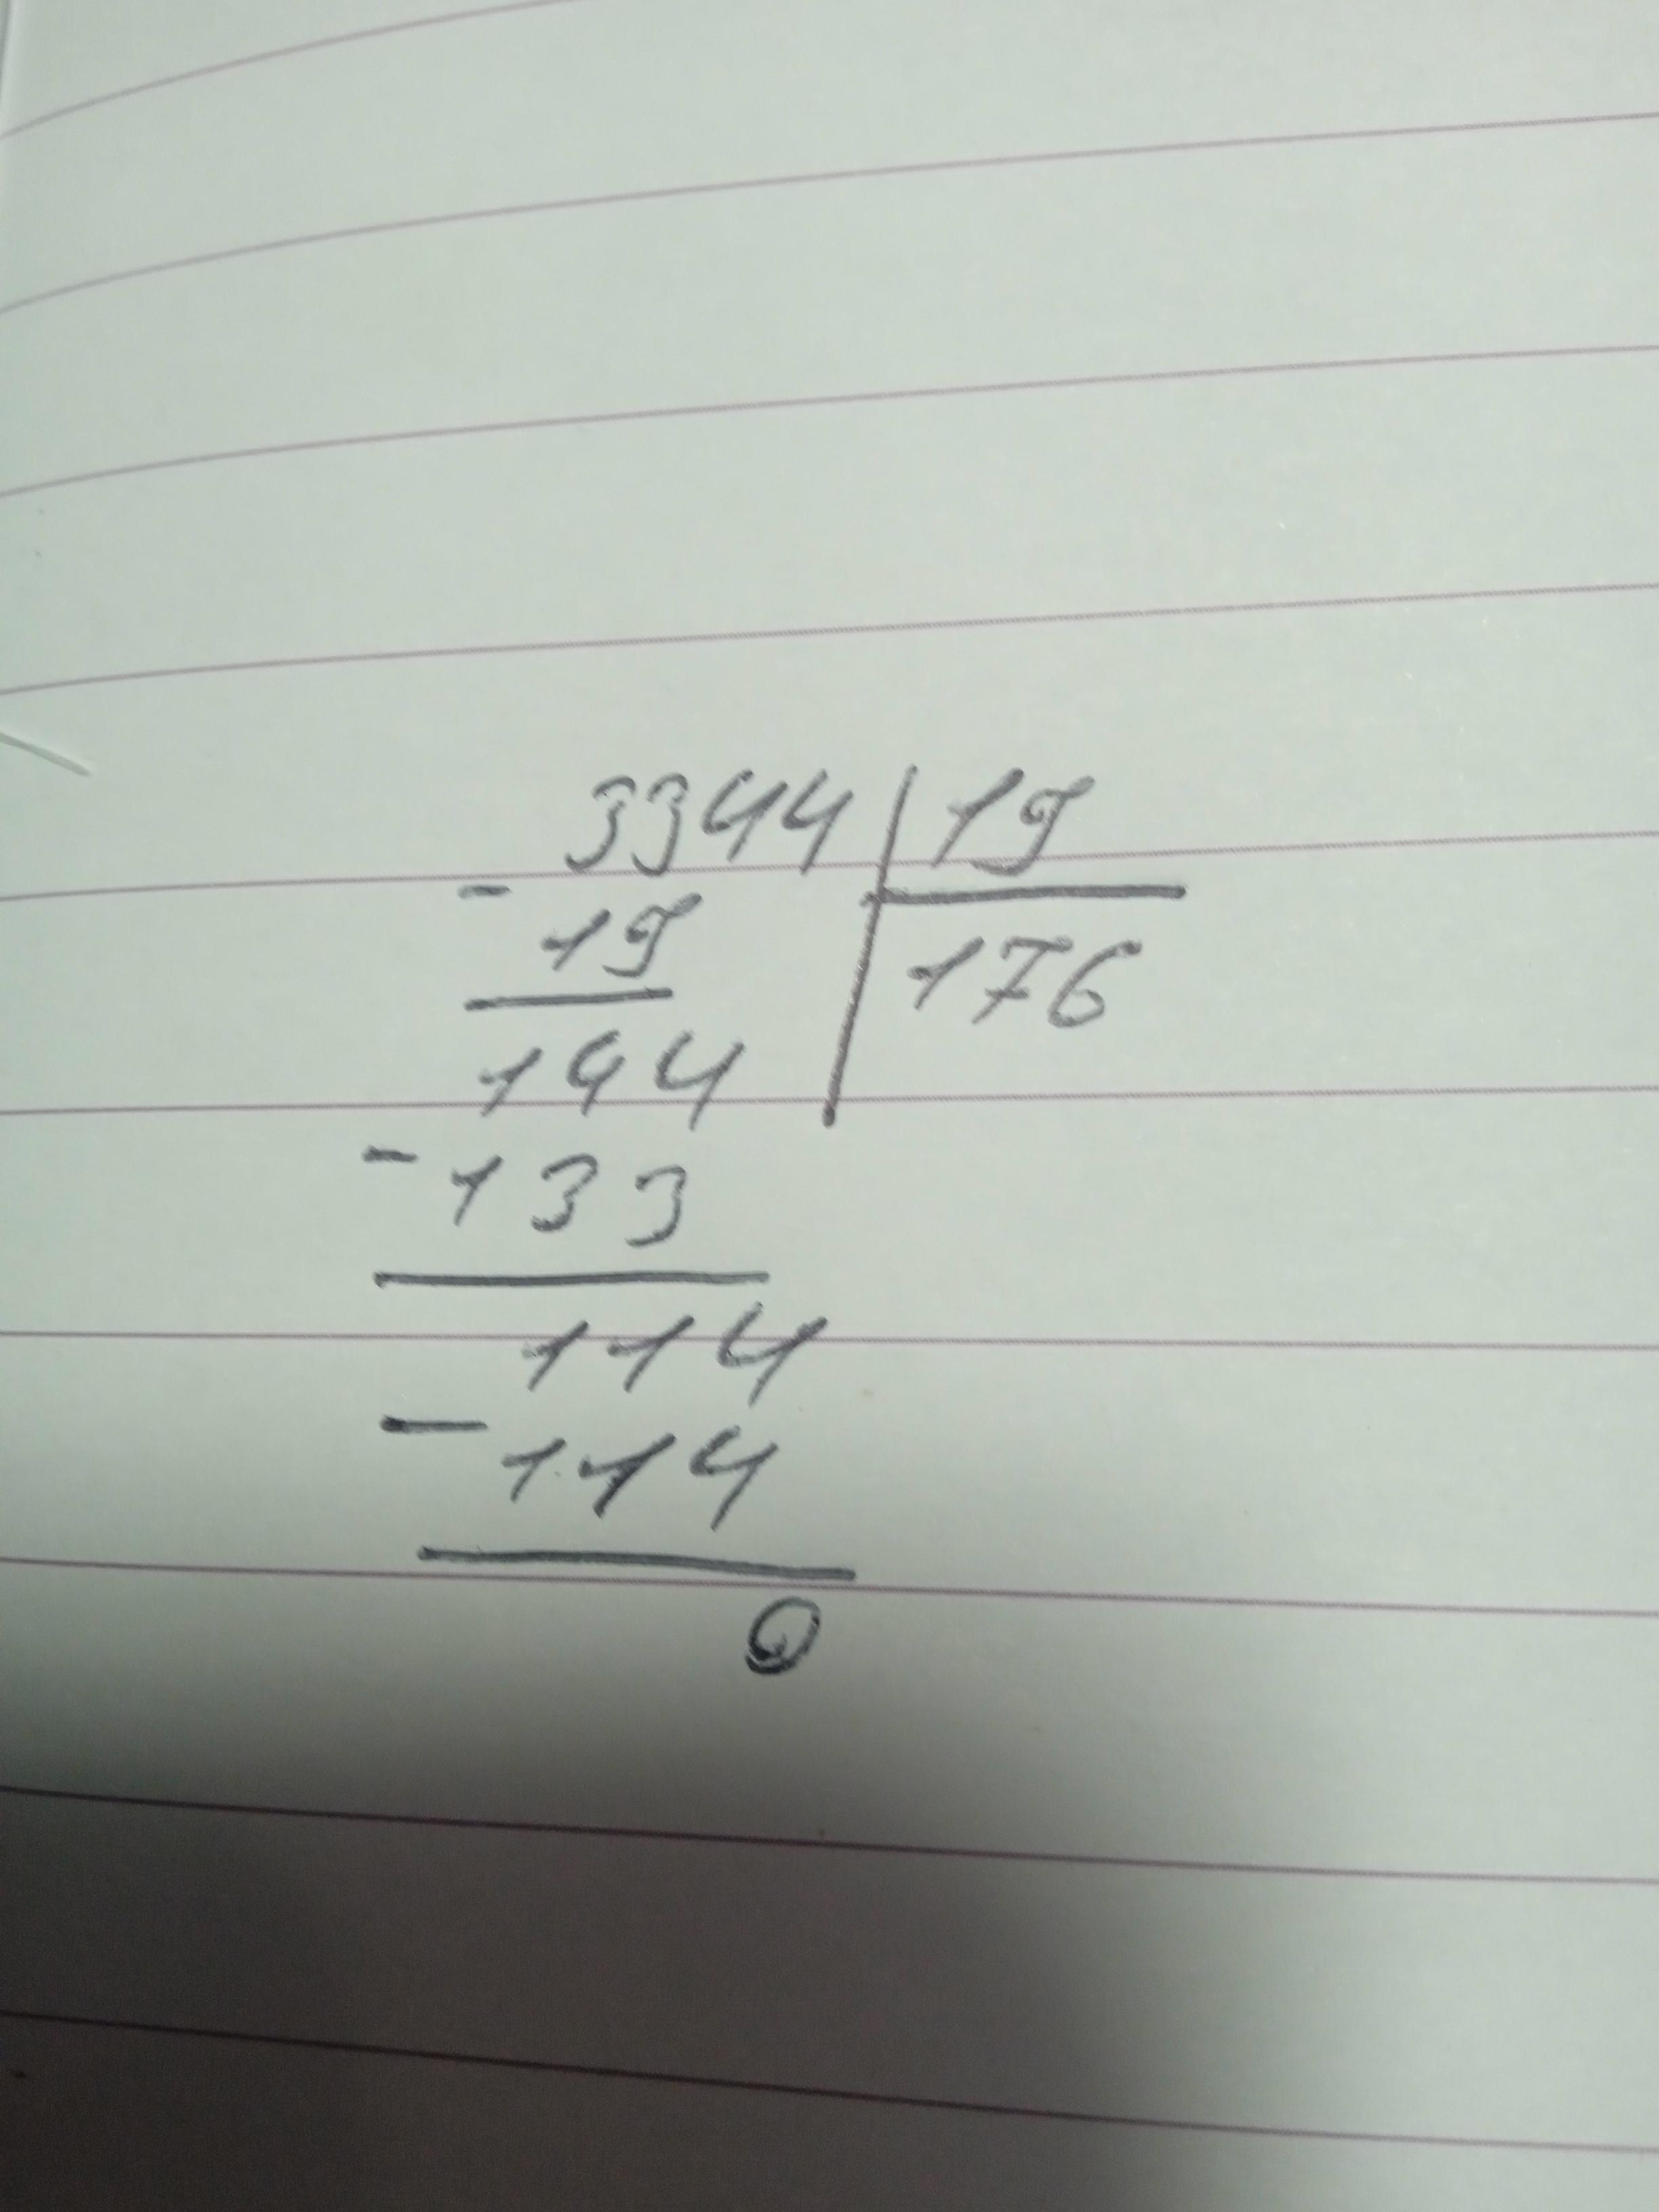 3344 | 19
- 19 | 176
144
- 133
114
- 114
0